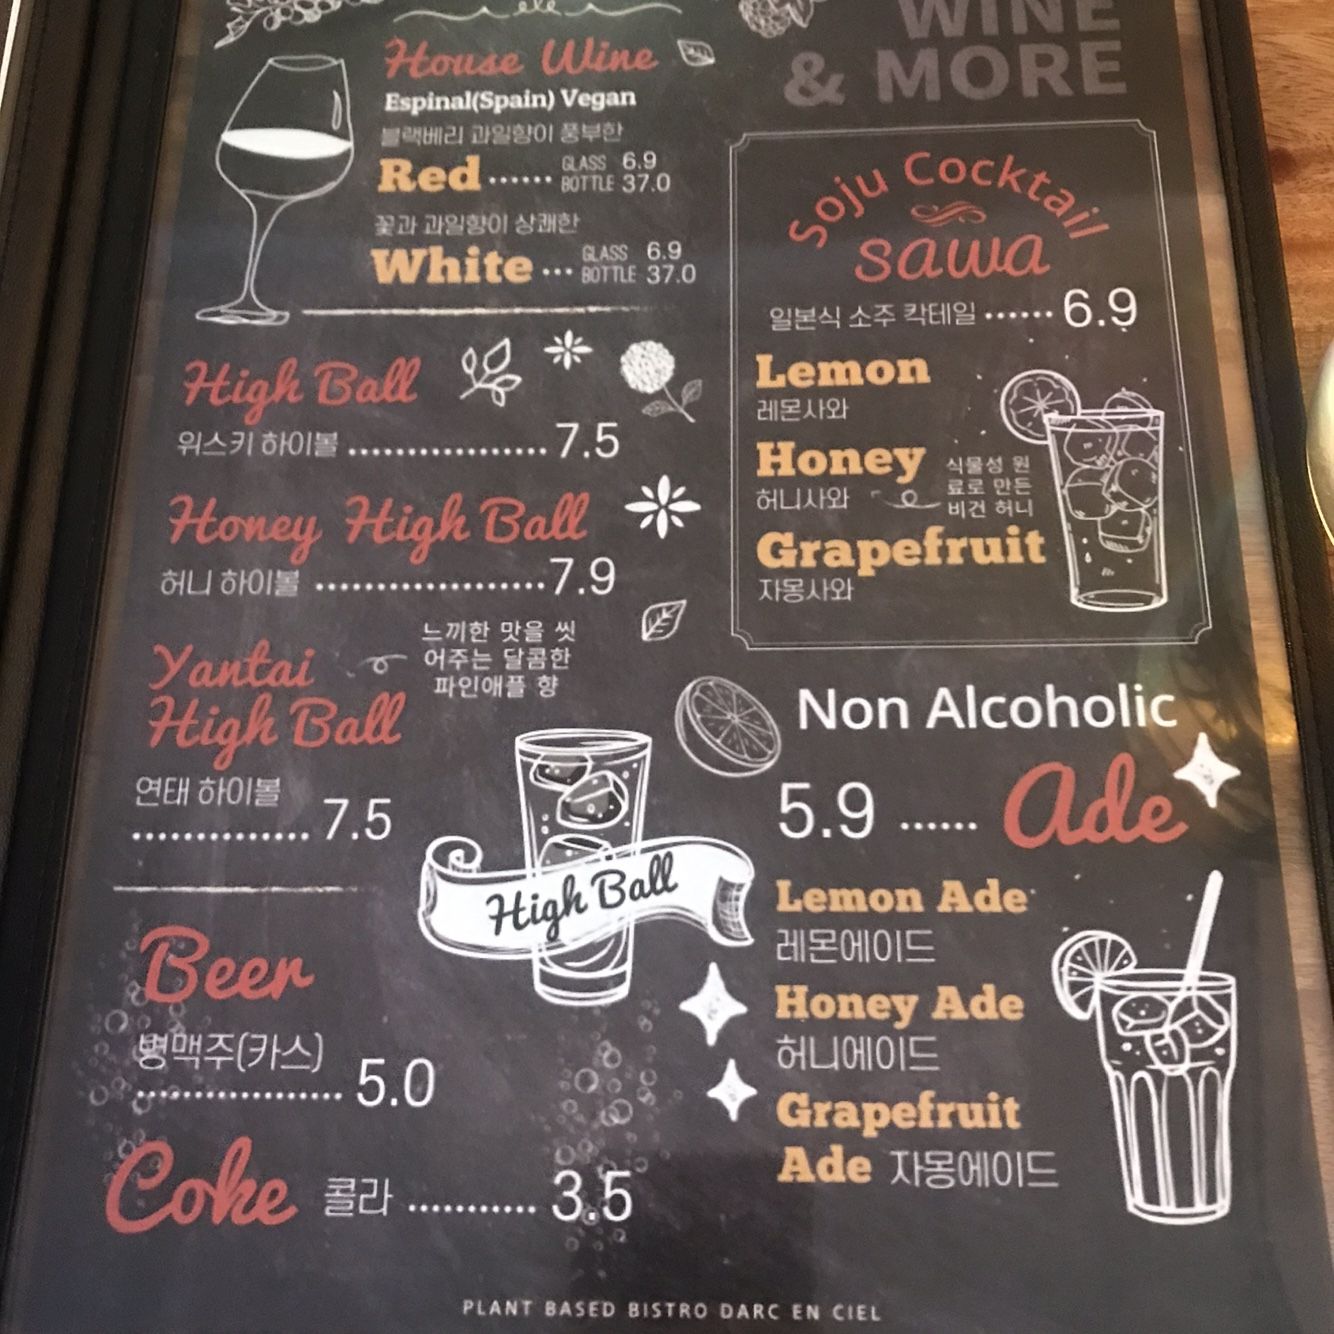 WINE
& MORE
House Wine
Espinal(Spain) Vegan
블랙베리 과일향이 풍부한
Red ...... GLASS 6.9
BOTTLE 37.0
꽃과 과일향이 상쾌한
White ... GLASS 6.9
BOTTLE 37.0
High Ball
위스키 하이볼 .................. 7.5
Honey High Ball
허니 하이볼 .................... 7.9
Yantai
High Ball
느끼한 맛을 씻
어주는 달콤한
파인애플 향
연태 하이볼
.............. 7.5
High Ball
Beer
병맥주(카스)
.................. 5.0
Coke 콜라 ........... 3.5
Soju Cocktail
sawa
일본식 소주 칵테일 ...... 6.9
Lemon
레몬사와
Honey
허니사와
식물성 원
료로 만든
비건 허니
Grapefruit
자몽사와
Non Alcoholic
5.9 ...... Ade
Lemon Ade
레몬에이드
Honey Ade
허니에이드
Grapefruit
Ade 자몽에이드
PLANT BASED BISTRO DARC EN CIEL